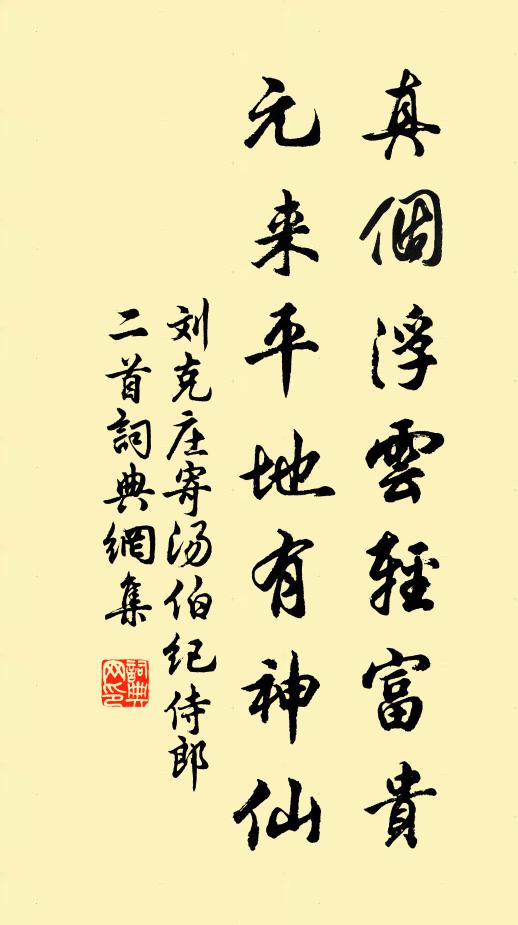 真個浮雲輕富貴
元来平地有神仙
刘克庄寄汤伯纪侍郎
二首詞典網集
詞典网印